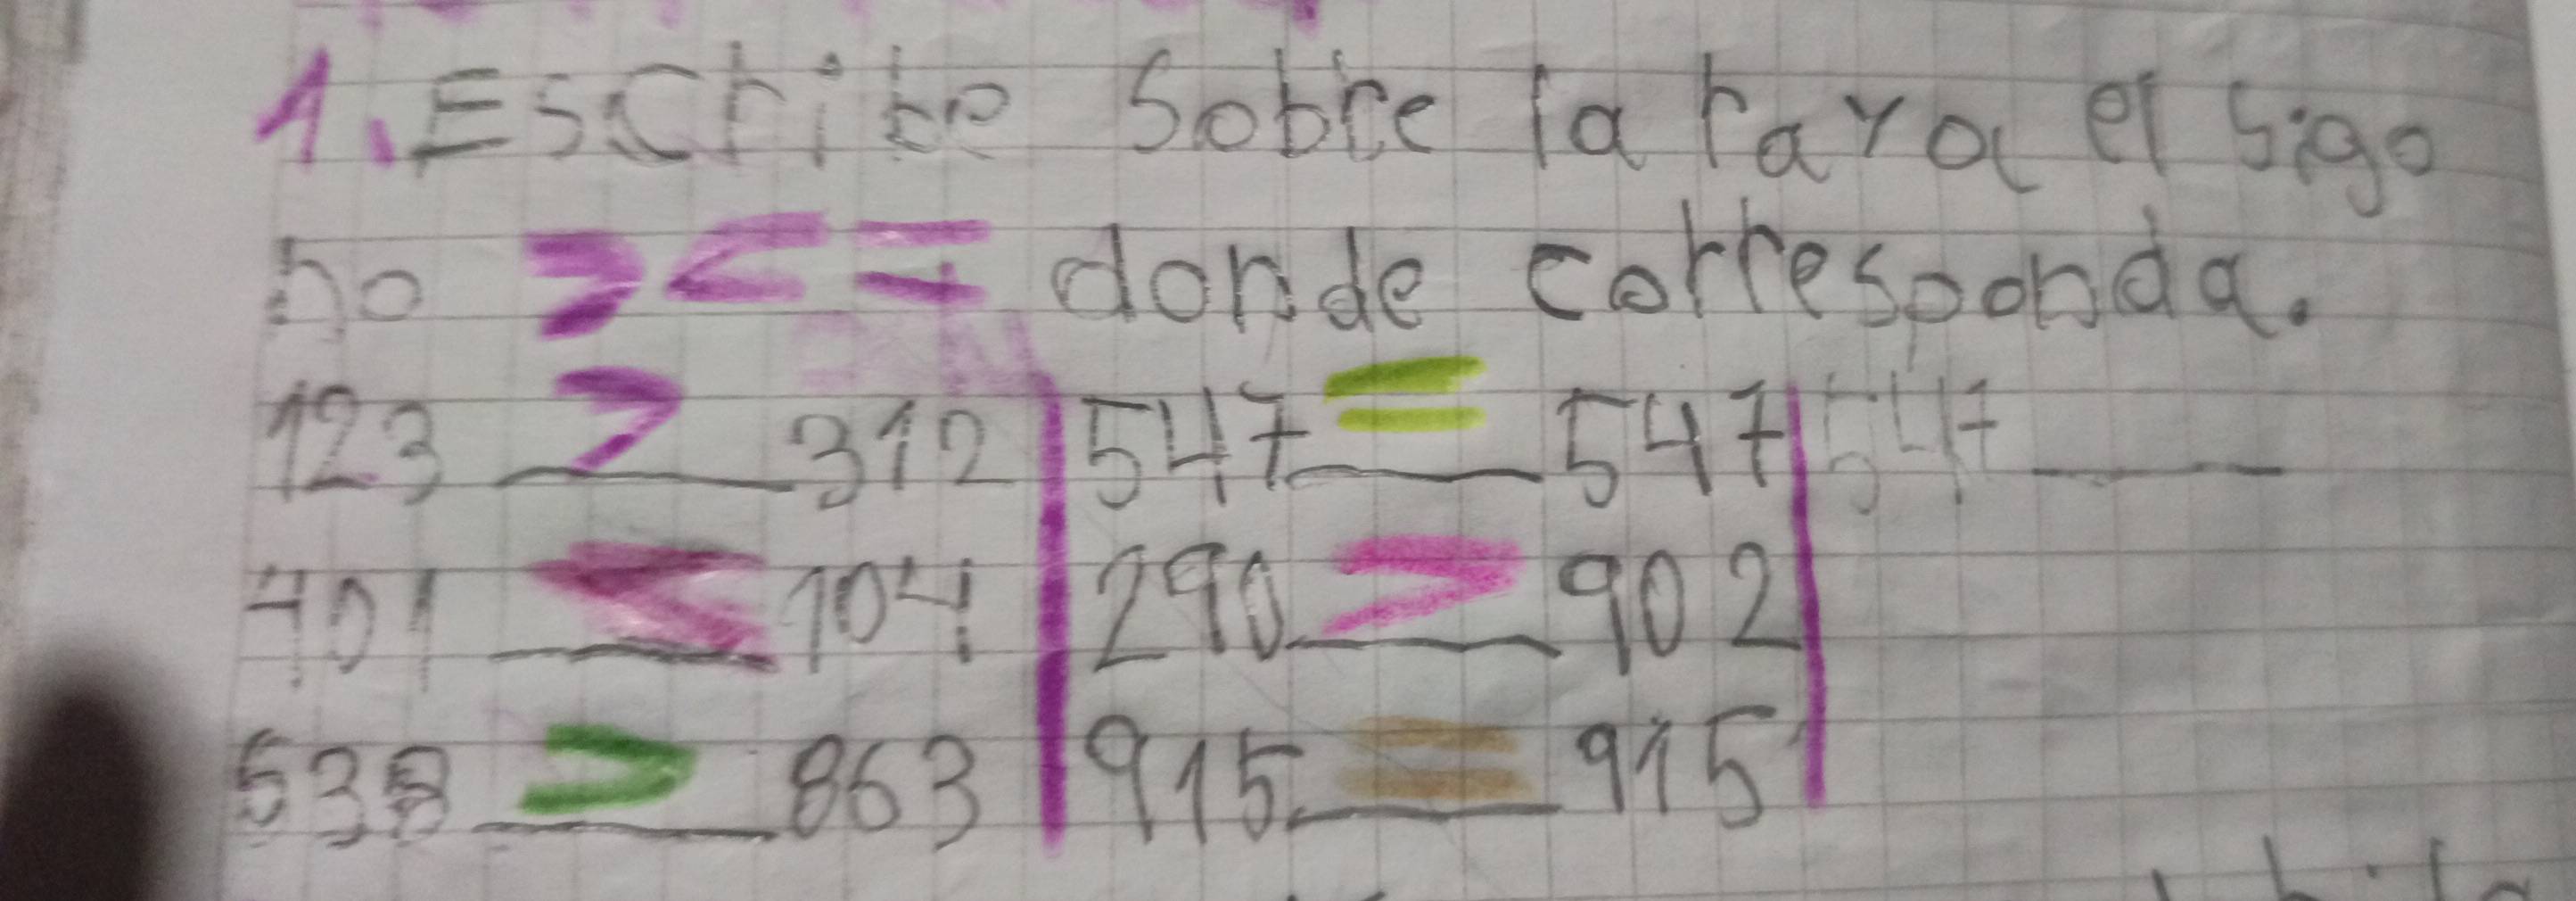 1. Escribe sobre la raya el sigo
no > < = donde corresponda.
123 > 312 547 = 547 547 ___
401 < 104 290 > 902
638 > 863 915 = 915